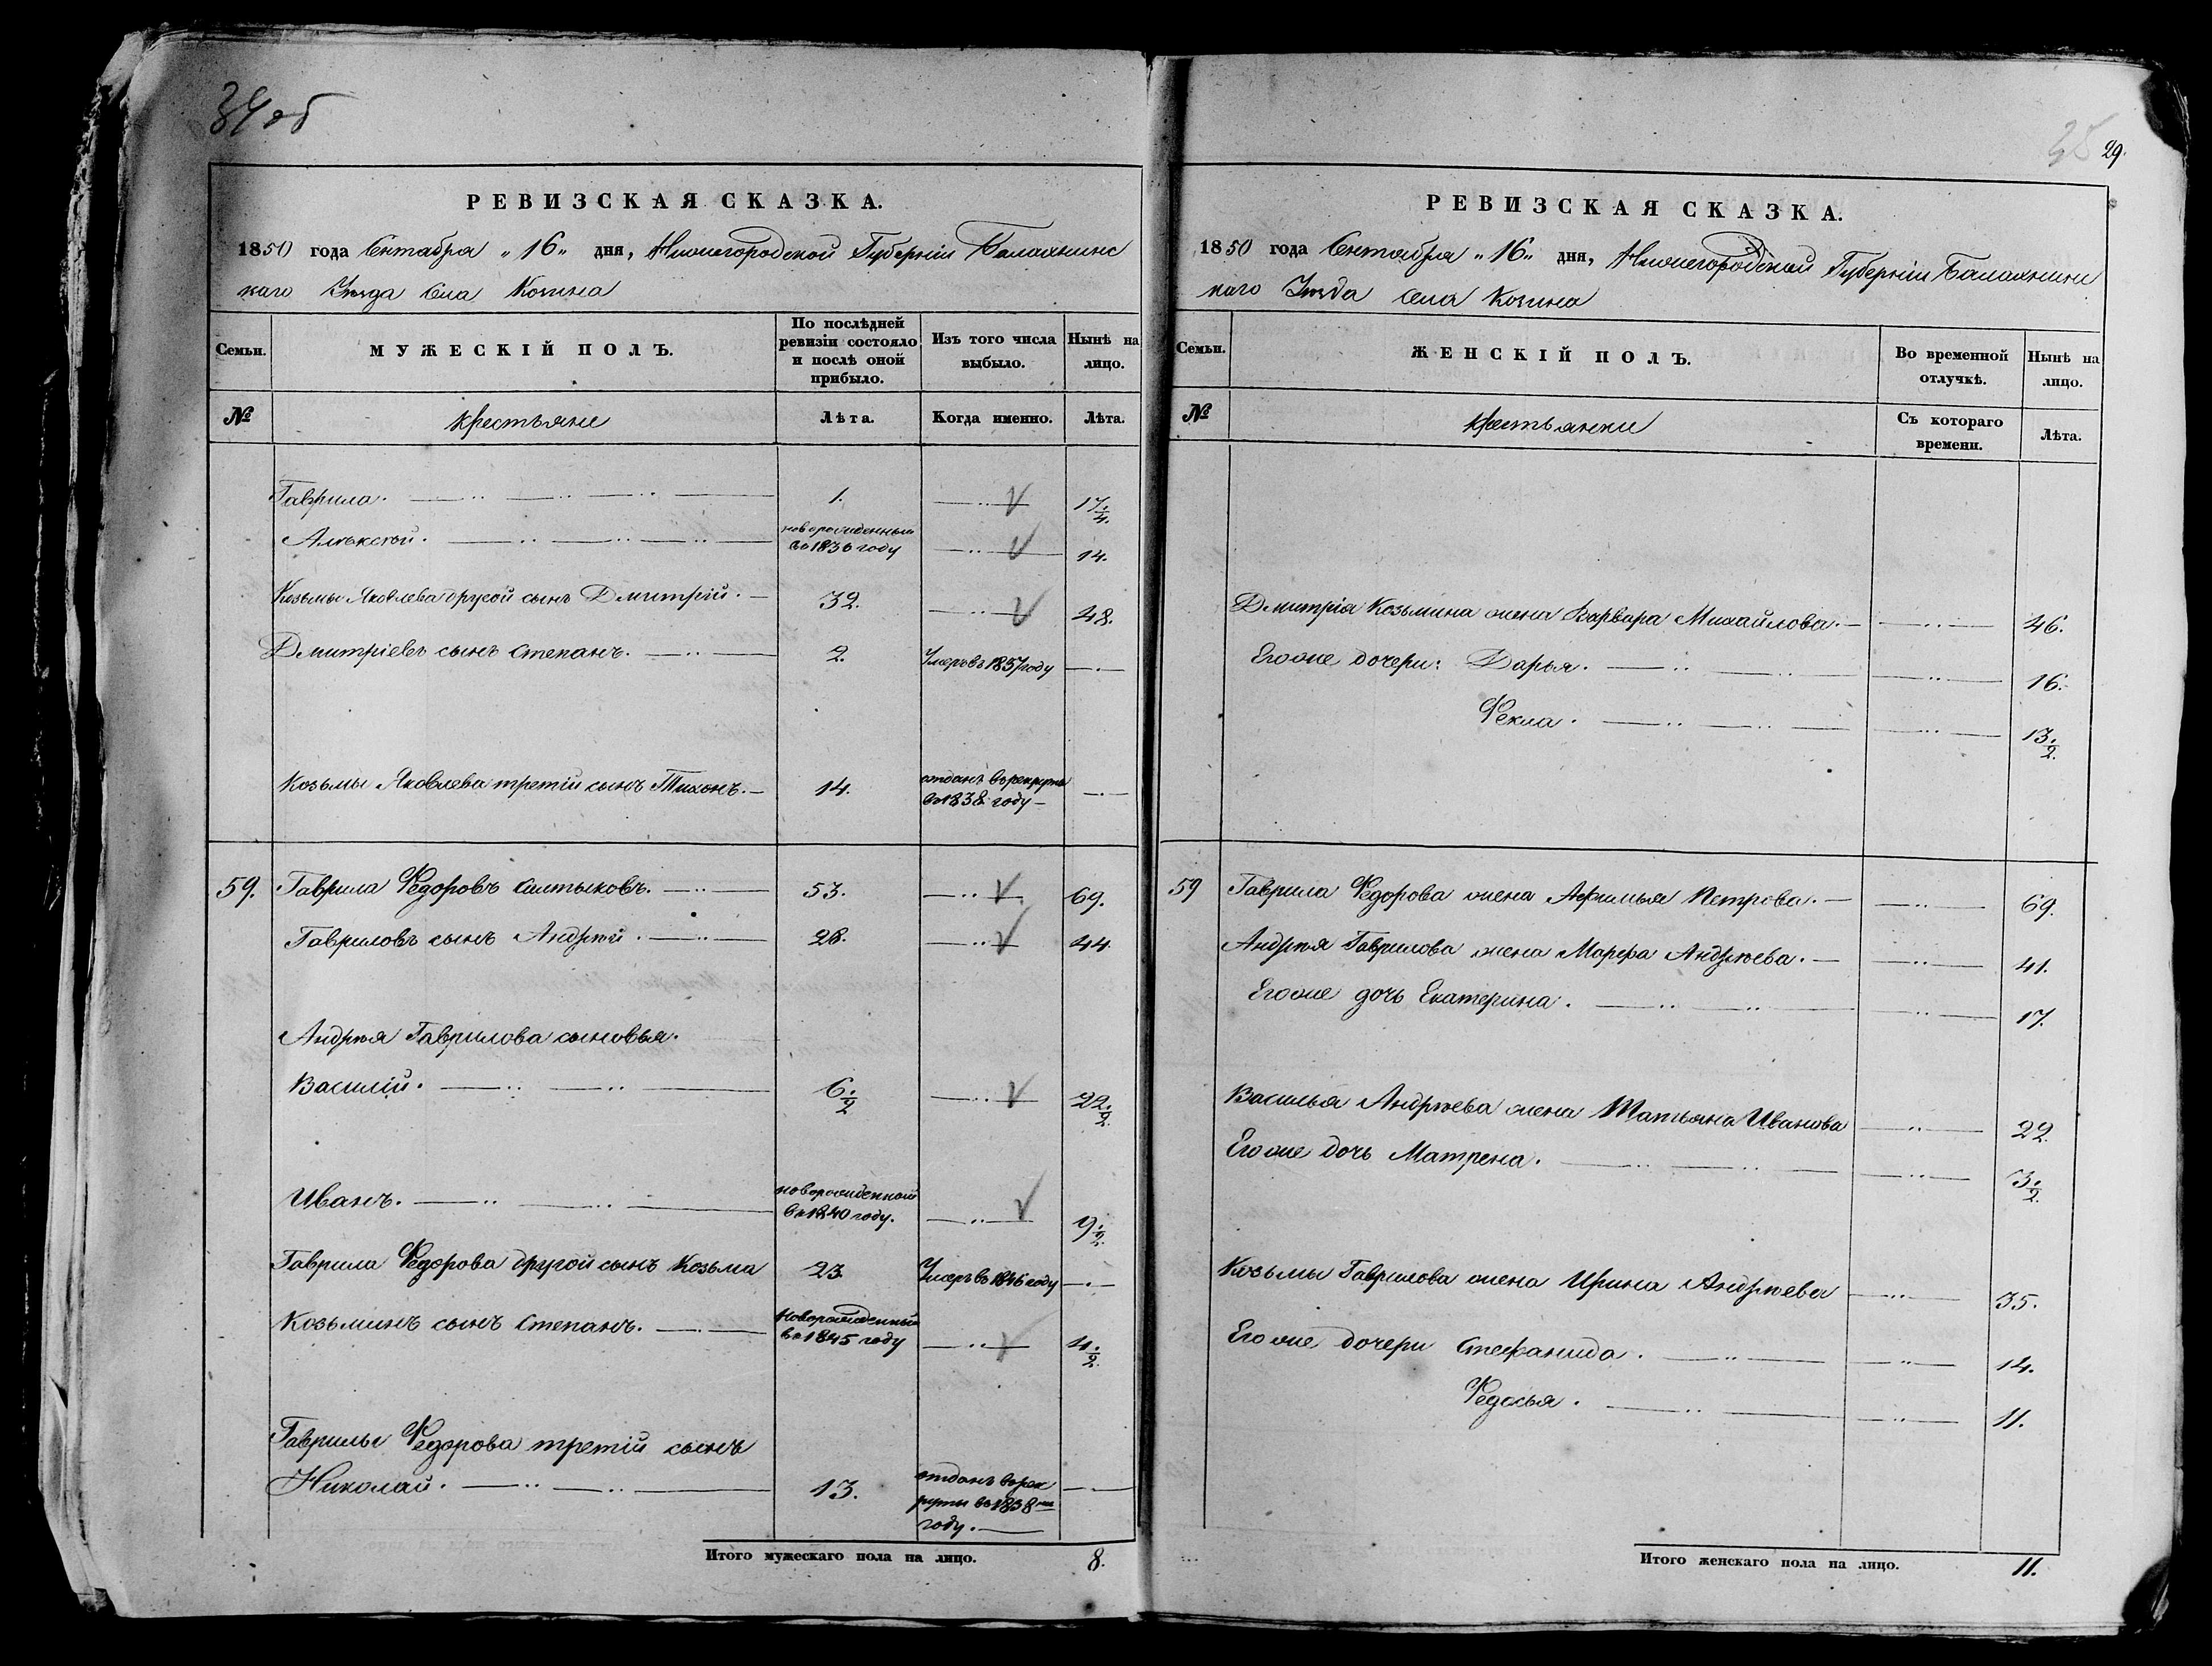 34об
РЕВИЗСКАЯ СКАЗКА.
1850 года Сентября „16„ дня, Нижегородской Губерніи Балахнинс
каго Уѣзда Села Козина
Семьи.
МУЖЕСКІЙ ПОЛЪ.
По послѣдней
ревизіи состояло
и послѣ оной
прибыло.
Изъ того числа
выбыло.
Нынѣ на
лицо.
№
крестьяне
Лѣта.
Когда именно.
Лѣта.
Гаврила. 1. 17.¾
Алѣксѣй. новорожденный
во 1836 году 14.
Козьмы Яковлева другой сынъ Дмитрій. 32. 48.
Дмитріевъ сынъ Степанъ. 2. Умеръ въ 1837 году
Козьмы Яковлева третій сынъ Тихонъ. 14. отданъ въ рекруты
во 1838 году
59. Гаврила Ѳедоровъ Салтыковъ. 53. 69.
Гавриловъ сынъ Андрѣй. 28. 44.
Андрѣя Гаврилова сыновья.
Василій. 6.½ 22.½
Иванъ. новорожденной
во 1840 году. 9.½
Гаврила Ѳедорова другой сынъ Козьма 23. Умеръ въ 1846 году
Козьминъ сынъ Степанъ. Новорожденный
во 1845 году 4.½
Гаврилы Ѳедорова третій сынъ
Николай. 13. отданъ в рек
руты въ 1838мъ
году.
Итого мужескаго пола на лицо. 8.
35 29.
РЕВИЗСКАЯ СКАЗКА.
1850 года Сентября „16„ дня, Нижегородской Губерніи Балахнинс
каго Уѣзда села Козина
Семьи.
ЖЕНСКІЙ ПОЛЪ.
Во временной
отлучкѣ.
Нынѣ на
лицо.
№
крестьянки
Съ котораго
времени.
Лѣта.
Дмитрія Козьмина жена Варвара Михайлова. 46.
Его же дочери: Дарья. 16.
Ѳекла. 13.½
59 Гаврила Ѳедорова жена Афимья Петрова. 69.
Андрѣя Гаврилова жена Марфа Андрѣева. 41.
Его же дочь Екатерина. 17.
Василья Андрѣева жена Татьяна Иванова 22.
Его же дочь Матрена. 3.½
Козьмы Гаврилова жена Ирина Андрѣева 35.
Его же дочери Стефанида. 14.
Ѳедосья. 11.
Итого женскаго пола на лицо. 11.